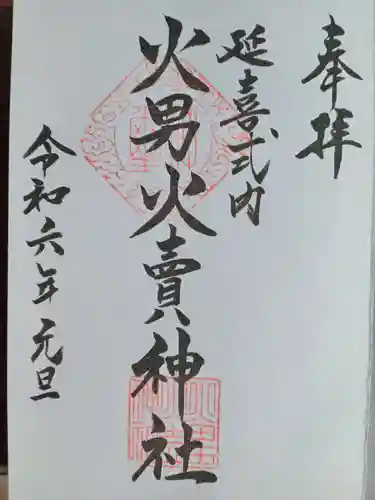 奉拝
延喜式内
火男火賣神社
令和六年元旦